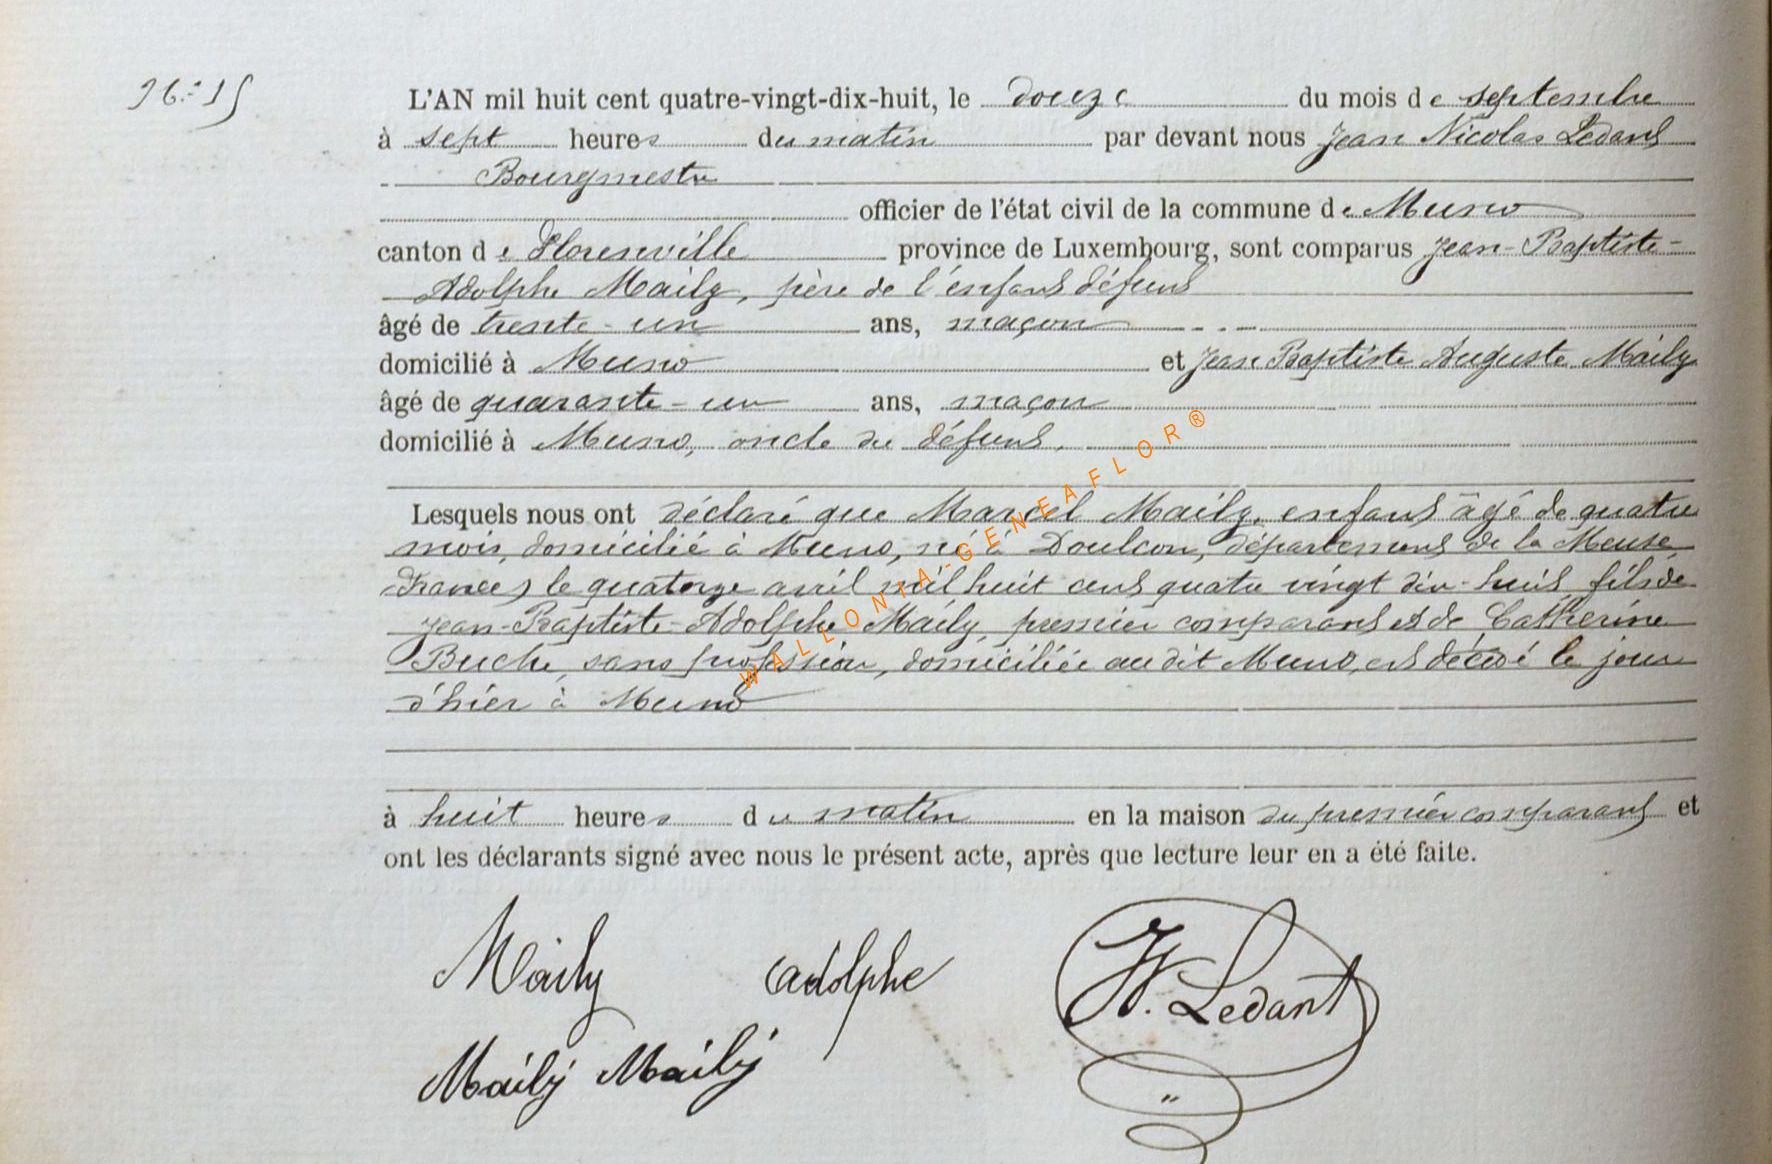 96.-15
L'AN mil huit cent quatre-vingt-dix-huit, le douze du mois de septembre
à sept heures du matin par devant nous Jean Nicolas Ledant
Bourgmestre
officier de l'état civil de la commune de Muno
canton de Florenville province de Luxembourg, sont comparus Jean-Baptiste-
Adolphe Maily, père de l'enfant défunt
âgé de trente-un ans, maçon
domicilié à Muno et Jean Baptiste Auguste Maily
âgé de quarante-un ans, maçon
domicilié à Muno, oncle du défunt,
Lesquels nous ont déclaré que Marcel Maily, enfant âgé de quatre
mois, domicilié à Muno, né à Doulcon, département de la Meuse,
(France) le quatorze avril mil huit cent quatre vingt dix-huit, fils de
Jean-Baptiste-Adolphe Maily, premier comparant et de Catherine
Buche, sans profession, domiciliée au dit Muno, est décédé le jour
d'hier à Muno
à huit heures du matin en la maison du premier comparant et
ont les déclarants signé avec nous le présent acte, après que lecture leur en a été faite.
Maily Adolphe
Maily Maily
Ledant
WALLONIA-GENEAFLOR®